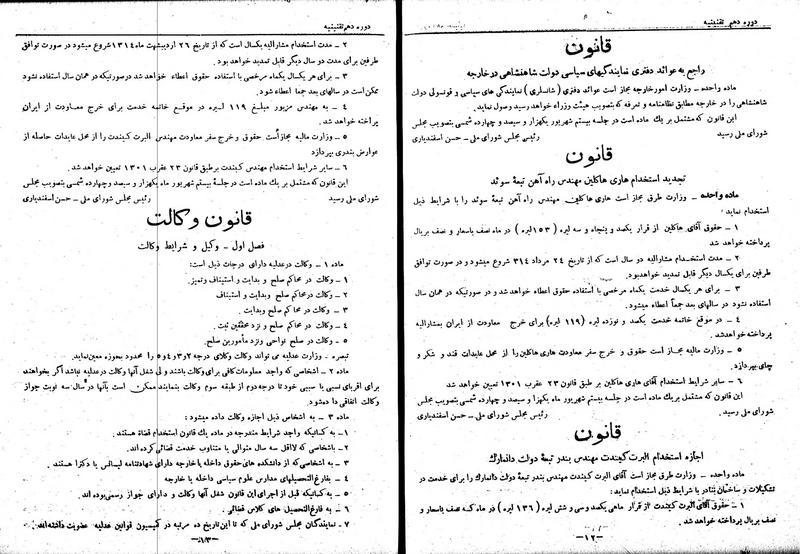 دوره دهم تقنینیه
قانون
راجع به عوائد دفتری نمایندگیهای سیاسی دولت شاهنشاهی در خارجه
ماده واحده – وزارت امورخارجه مجاز است عوائد دفتری (شانسلری) نمایندگی های سیاسی و قونسولی دولت
شاهنشاهی را در خارجه مطابق نظامنامه و تعرفه که بتصویب هیئت وزراء خواهد رسید وصول نماید.
این قانون که مشتمل بر یک ماده است در جلسه بیستم شهریور ماه یکهزار و سیصد و چهارده شمسی بتصویب مجلس
شورای ملی رسید رئیس مجلس شورای ملی – حسن اسفندیاری
قانون
تجدید استخدام هاری هاکلین مهندس راه آهن تبعهٔ سوئد
ماده واحده – وزارت طرق مجاز است هاری هاکلین مهندس راه آهن تبعهٔ سوئد را با شرایط ذیل
استخدام نماید:
۱ – حقوق آقای هاکلین از قرار یکصد و پنجاه و سه لیره (۱۵۳ لیره) در ماه نصف باسعار و نصف بریال
پرداخته خواهد شد
۲ – مدت استخدام مشارالیه دو سال است که از تاریخ ۲۴ مرداد ۳۱۴ شروع میشود و در صورت توافق
طرفین برای یکسال دیگر قابل تمدید خواهدبود.
۳ – برای هر یکسال خدمت یکماه مرخصی با استفاده حقوق اعطاء خواهد شد و در صورتیکه در همان سال
استفاده نشود در سالهای بعد جمعاً اعطاء میشود.
۴ – در موقع خاتمه خدمت یکصد و نوزده لیره (۱۱۹ لیره) برای خرج معاودت از ایران بمشارالیه
پرداخته خواهدشد.
۵ – وزارت مالیه مجاز است حقوق و خرج سفر معاودت هاری هاکلین را از محل عایدات قند و شکر و
چای بپردازد.
۶ – سایر شرایط استخدام آقای هاری هاکلین بر طبق قانون ۲۳ عقرب ۱۳۰۱ تعیین خواهد شد
این قانون که مشتمل بر یک ماده است در جلسه بیستم شهریور ماه یکهزار و سیصد و چهارده شمسی بتصویب مجلس
شورای ملی رسید. رئیس مجلس شورای ملی – حسن اسفندیاری
قانون
اجازه استخدام البرت کیندت مهندس بندر تبعهٔ دولت دانمارک
ماده واحده – وزارت طرق مجاز است آقای البرت کیندت مهندس بندر تبعهٔ دولت دانمارک را برای خدمت در
تشکیلات و ساختمان بنادر با شرایط ذیل استخدام نماید:
۱ – حقوق آقای البرت کیندت از قرار ماهی یکصد و سی و شش لیره (۱۳۶ لیره) در ماه که نصف باسعار و
نصف بریال پرداخته خواهد شد.
–۱۲–
دوره دهم تقنینیه
۲ – مدت استخدام مشارالیه یکسال است که از تاریخ ۲۶ اردیبهشت ماه ۱۳۱۴ شروع میشود در صورت توافق
طرفین برای مدت دو سال دیگر قابل تمدید خواهد بود.
۳ – برای هر یکسال یکماه مرخصی با استفاده حقوق اعطاء خواهد شد درصورتیکه در همان سال استفاده نشود
ممکن است در سالهای بعد جمعاً اعطاء شود.
۴ – به مهندس مزبور مبلغ ۱۱۹ لیره در موقع خاتمه خدمت برای خرج معاودت از ایران
پراخته خواهد شد.
۵ – وزارت مالیه مجازاست حقوق و خرج سفر معاودت مهندس البرت کیندت را از محل عایدات حاصله از
عوارض بندری بپردازد
۶ – سایر شرایط استخدام مهندس کیندت برطبق قانون ۲۳ عقرب ۱۳۰۱ تعیین خواهد شد.
این قانون که مشتمل بر یک ماده است در جلسهٔ بیستم شهریور ماه یکهزار و سیصد و چهارده شمسی بتصویب مجلس
شورای ملی رسید رئیس مجلس شورای ملی – حسن اسفندیاری
قانون وکالت
فصل اول – وکیل و شرایط وکالت
ماده ۱ – وکالت در عدلیه دارای درجات ذیل است:
۱ – وکالت در محاکم صلح و بدایت و استیناف و تمیز.
۲ – وکالت در محاکم صلح و بدایت و استیناف
۳ – وکالت در محاکم صلح و بدایت.
۴ – وکالت در محاکم صلح و نزد محققین ثبت.
۵ – وکالت در صلح نواحی و نزد مأمورین صلح.
تبصره – وزارت عدلیه می تواند وکالت وکلای درجه ۲ و ۳ و ۴ و ۵ را محدود بحوزه معین نماید.
ماده ۲ – اشخاصی که واجد معلومات کافی برای وکالت باشند ولی شغل آنها وکالت در عدلیه نباشد اگر بخواهند
برای اقربای نسبی یا سببی خود تا درجه دوم از طبقه سوم وکالت بنمایند ممکن است بآنها در سال سه نوبت جواز
وکالت اتفاقی داده شود.
ماده ۳ – به اشخاص ذیل اجازه وکالت داده میشود:
۱– به کسانیکه واجد شرایط مندرجه در ماده یک قانون استخدام قضاة هستند.
۲– باشخاصی که لااقل سه سال متوالی یا متناوب خدمت قضائی کرده اند.
۳ – به اشخاصی که از دانشکده های حقوق داخله یا خارجه دارای شهادتنامه لیسانس یا دکترا هستند.
۴ – بفارغ التحصیلهای مدارس علوم سیاسی داخله یا خارجه
۵ – به کسانیکه قبل از اجرای این قانون شغل آنها وکالت و دارای جواز رسمی بوده اند.
۶ – به فارغ التحصیل های کلاس قضائی.
۷ – نمایندگان مجلس شورای ملی که تا این تاریخ ده مرتبه در کمیسیون قوانین عدلیه عضویت داشته اند.